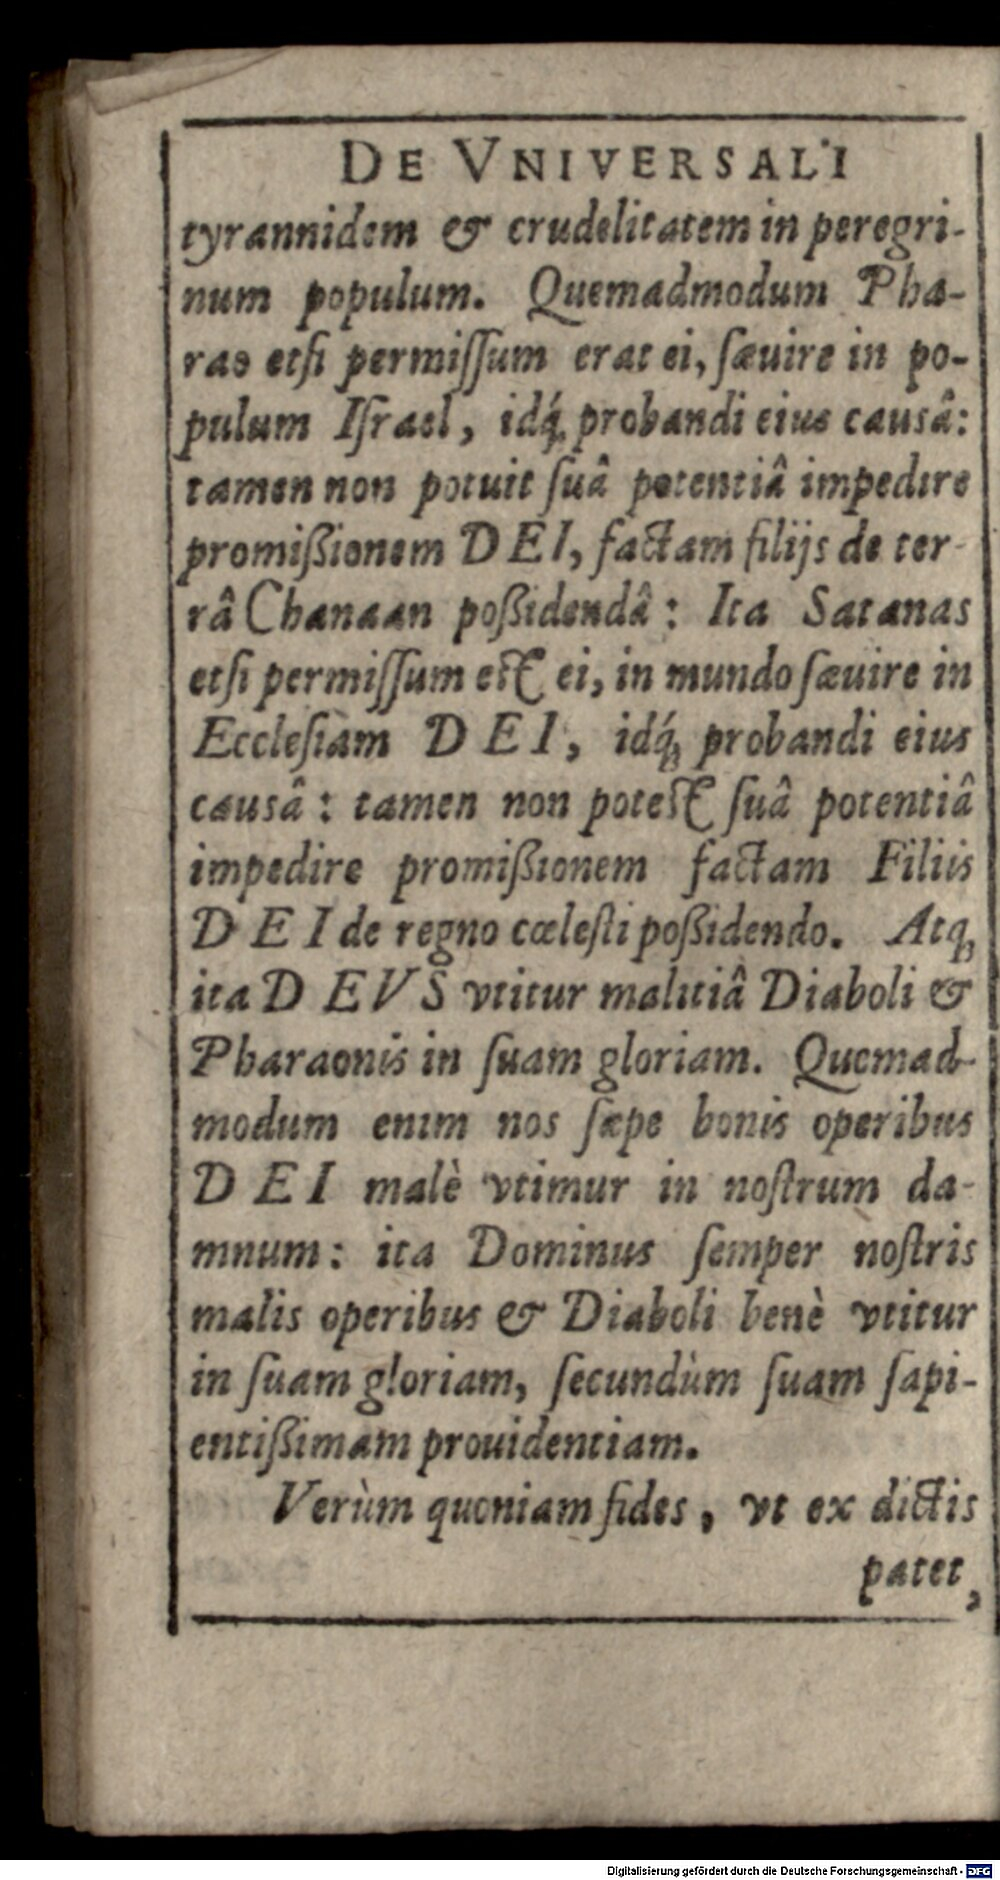 DE VNIVERSALI
tyrannidem & crudelitatem in peregri-
num populum. Quemadmodum Pha-
rao etſi permiſſum erat ei, ſæuire in po-
pulum Iſrael, idq́; probandi eius causâ:
tamen non potuit ſuâ potentiâ impedire
promißionem DEI, factam filijs de ter-
râ Chanaan poßidendâ: Ita Satanas
etſi permiſſum eſt ei, in mundo ſæuire in
Eccleſiam DEI, idq́; probandi eius
causâ: tamen non poteſt ſuâ potentiâ
impedire promißionem factam Filiis
DEI de regno cœleſti poßidendo. Atq;
ita DEVS vtitur malitiâ Diaboli &
Pharaonis in ſuam gloriam. Quemad-
modum enim nos ſæpe bonis operibus
DEI malè vtimur in noſtrum da-
mnum: ita Dominus ſemper noſtris
malis operibus & Diaboli benè vtitur
in ſuam gloriam, ſecundùm ſuam ſapi-
entißimam prouidentiam.
Verùm quoniam fides, vt ex dictis
patet,
Digitalisierung gefördert durch die Deutsche Forschungsgemeinschaft - DFG